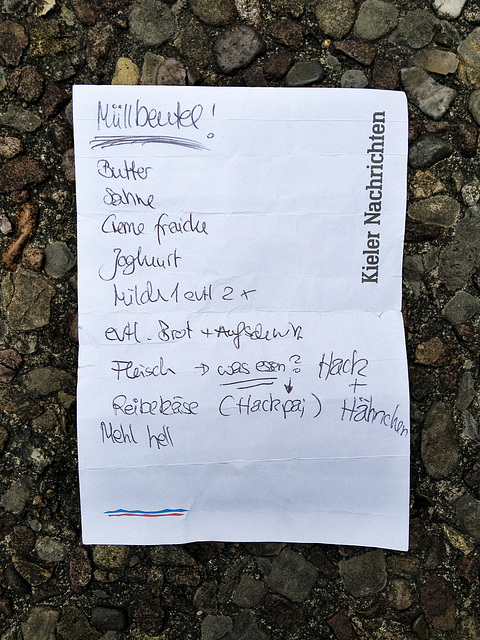 Müllbeutel!
Kieler Nachrichten
Butter
Sahne
Creme fraiche
Joghurt
Milch 1 evtl 2 x
evtl. Brot + Aufschnitt
Fleisch → was essen? Hack
+
Reibekäse (Hackpai) Hähnchen
Mehl hell